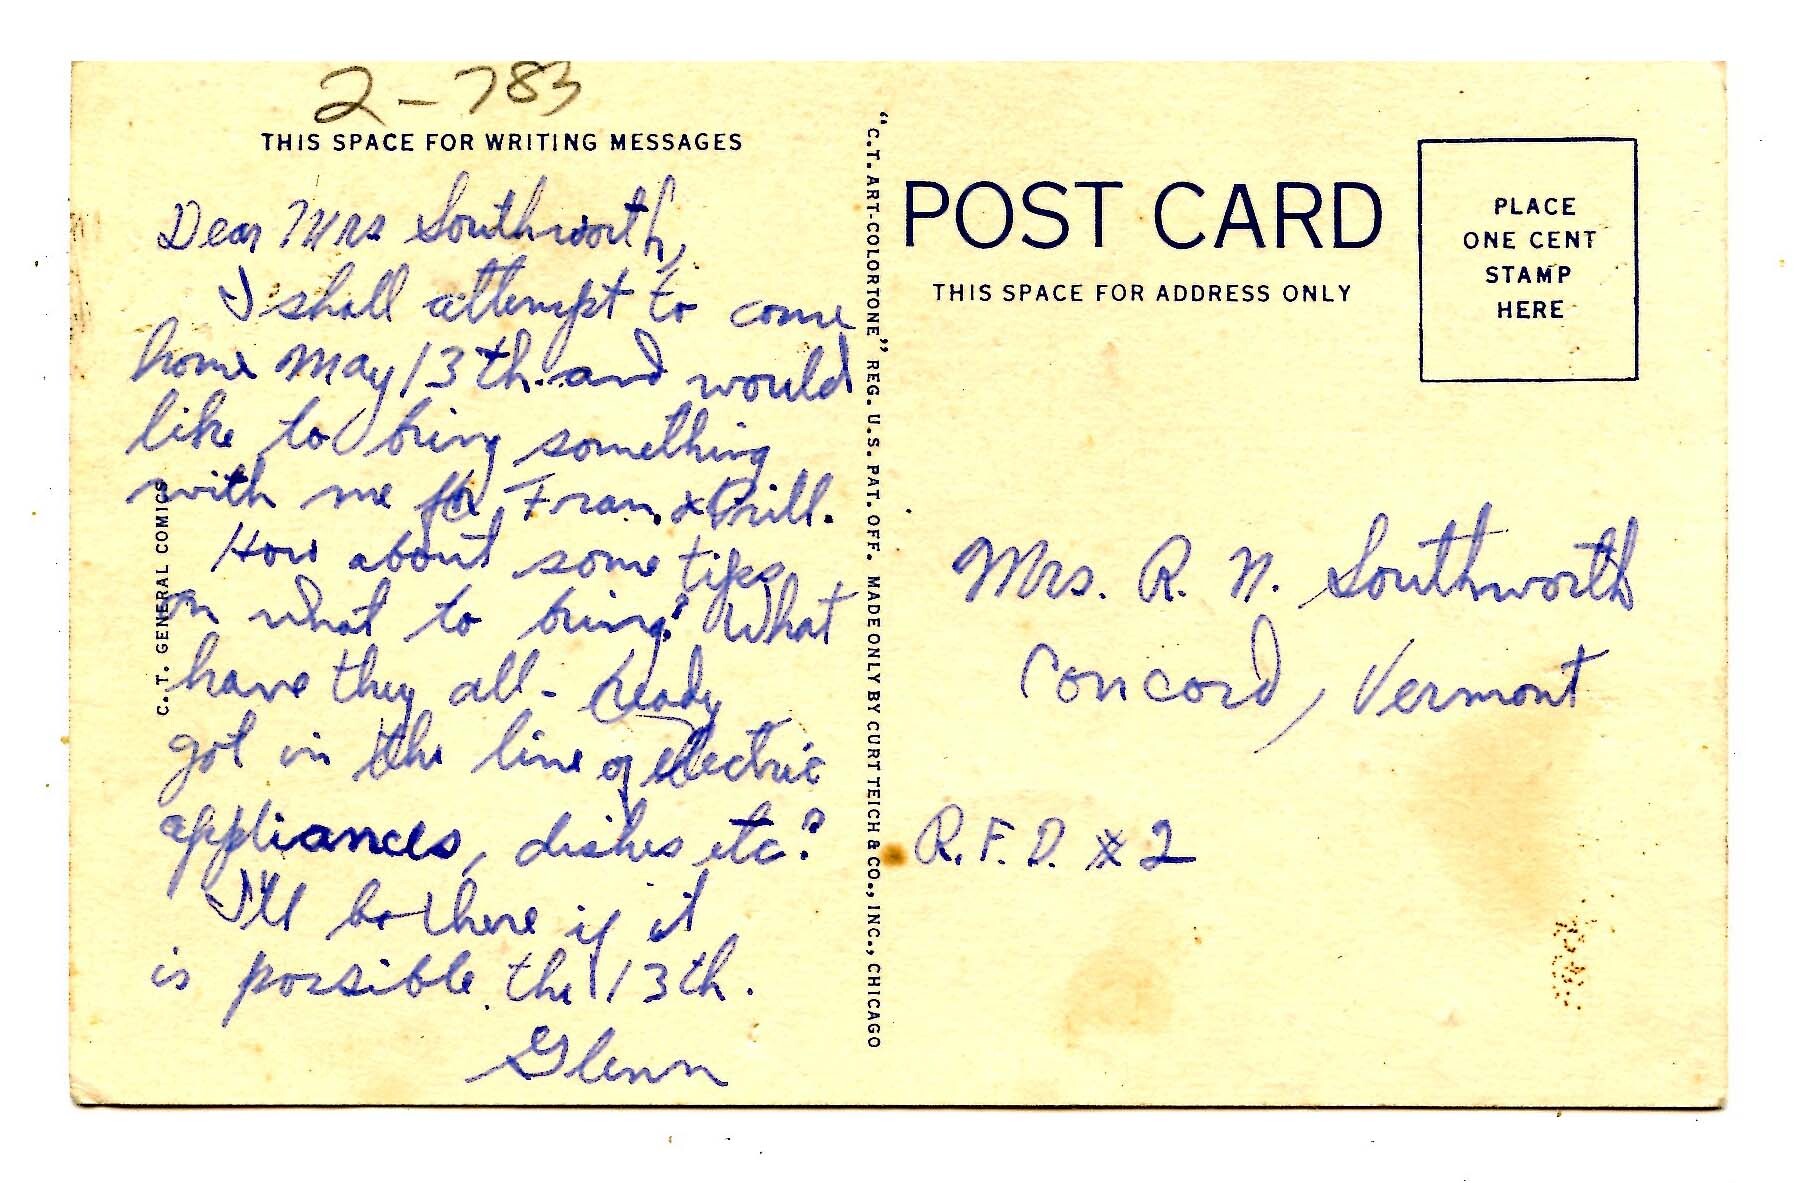 2-783
THIS SPACE FOR WRITING MESSAGES
Dear Mrs Southworth,
I shall attempt to come
home May 13th. and would
like to bring something
with me for Fran & Brill.
How about some tips
on what to bring? What
have they all- ready
got in the line of electric
appliances, dishes etc?
I'll be there if it
is possible the 13th.
Glenn
C.T. GENERAL COMICS
"C.T. ART-COLORTONE" REG. U.S. PAT. OFF. MADE ONLY BY CURT TEICH & CO., INC., CHICAGO
POST CARD
THIS SPACE FOR ADDRESS ONLY
PLACE
ONE CENT
STAMP
HERE
Mrs. R. N. Southworth
Concord, Vermont
R.F.D. #2